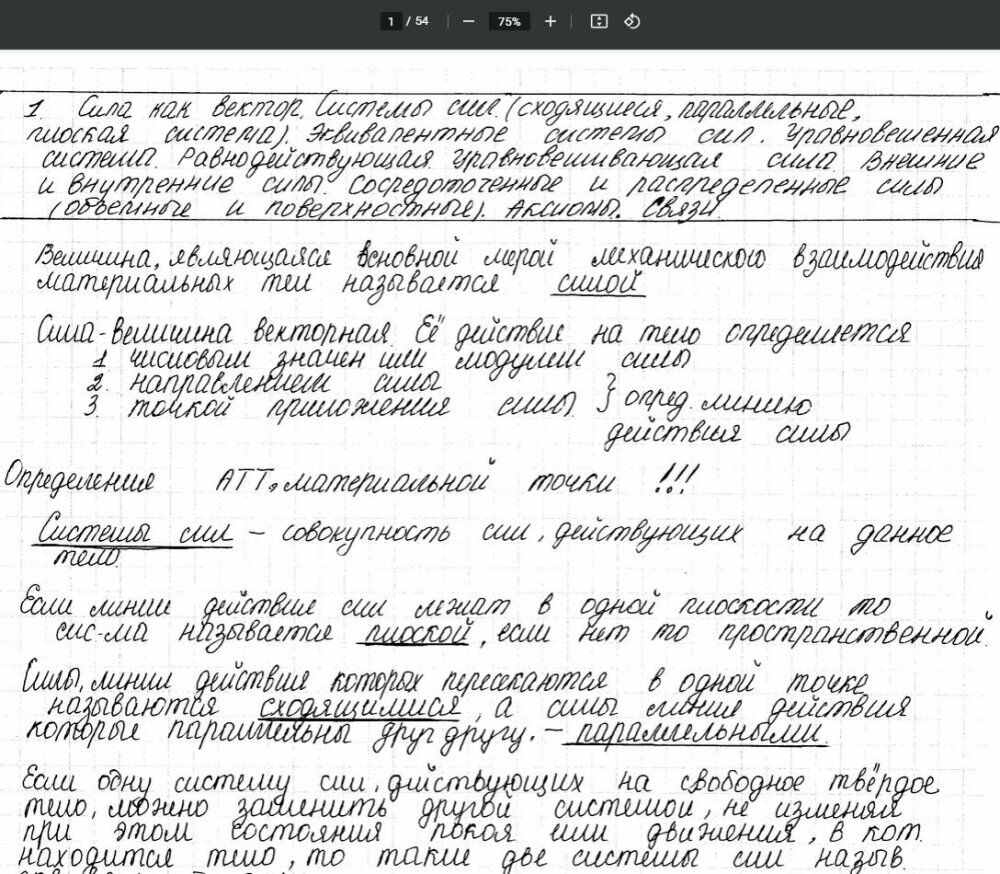 1 / 54 75%
1. Сила как вектор. Системы сил (сходящиеся, параллельные,
плоская система). Эквивалентные системы сил. Уравновешенная
система. Равнодействующая уравновешивающая сила. Внешние
и внутренние силы. Сосредоточенные и распределенные силы
(объемные и поверхностные). Аксиомы. Связи.
Величина, являющаяся основной мерой механического взаимодействия
материальных тел называется силой
Сила-величина векторная. Её действие на тело определяется
1 числовым значен или модулем силы
2. направлением силы
3. точкой приложения силы. } опред. линию
действия силы
Определения АТТ, материальной точки !!!
Системы сил – совокупность сил, действующих на данное
тело.
Если линие действие сил лежат в одной плоскости то
сис-ма называется плоской, если нет то пространственной.
Силы, линии действия которых пересекаются в одной точке
называются сходящимися, а силы линие действия
которые параллельны друг другу. – параллельными.
Если одну систему сил, действующих на свободное твёрдое
тело, можно заменить другой системой, не изменяя
при этом состояния покоя или движения, в кот.
находится тело, то такие две системы сил назыв.